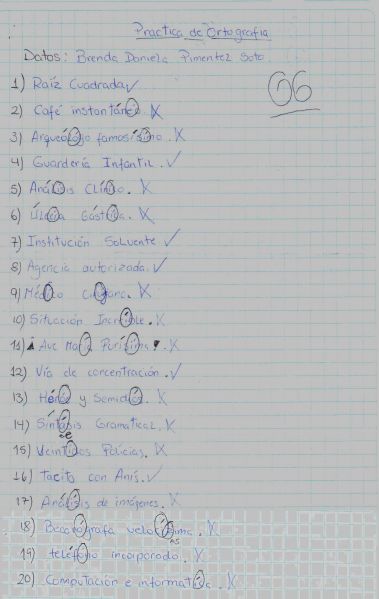 Practica de Ortografía
Datos: Brenda Daniela Pimentel Soto
06
1) Raíz Cuadrada
2) Café instantáneo X
3) Arqueólogo famosísimo. X
4) Guardería Infantil. ✓
5) Análisis Clínico. X
6) Úlcera Gástrica. X
7) Institución Solvente ✓
8) Agencia autorizada. ✓
9) Médico X
10) Situación Increíble. X
11) ¡Ave María Purísima! X
12) Vía de concentración. ✓
13) Héroe y Semidiós. X
14) Síntesis Gramatical. X
15) Veintidos Policías. X
16) Tacito con Anís. ✓
17) Análisis de imágenes. X
18) X
19) teléfono incorporado. X
20) Computación e informatica. X